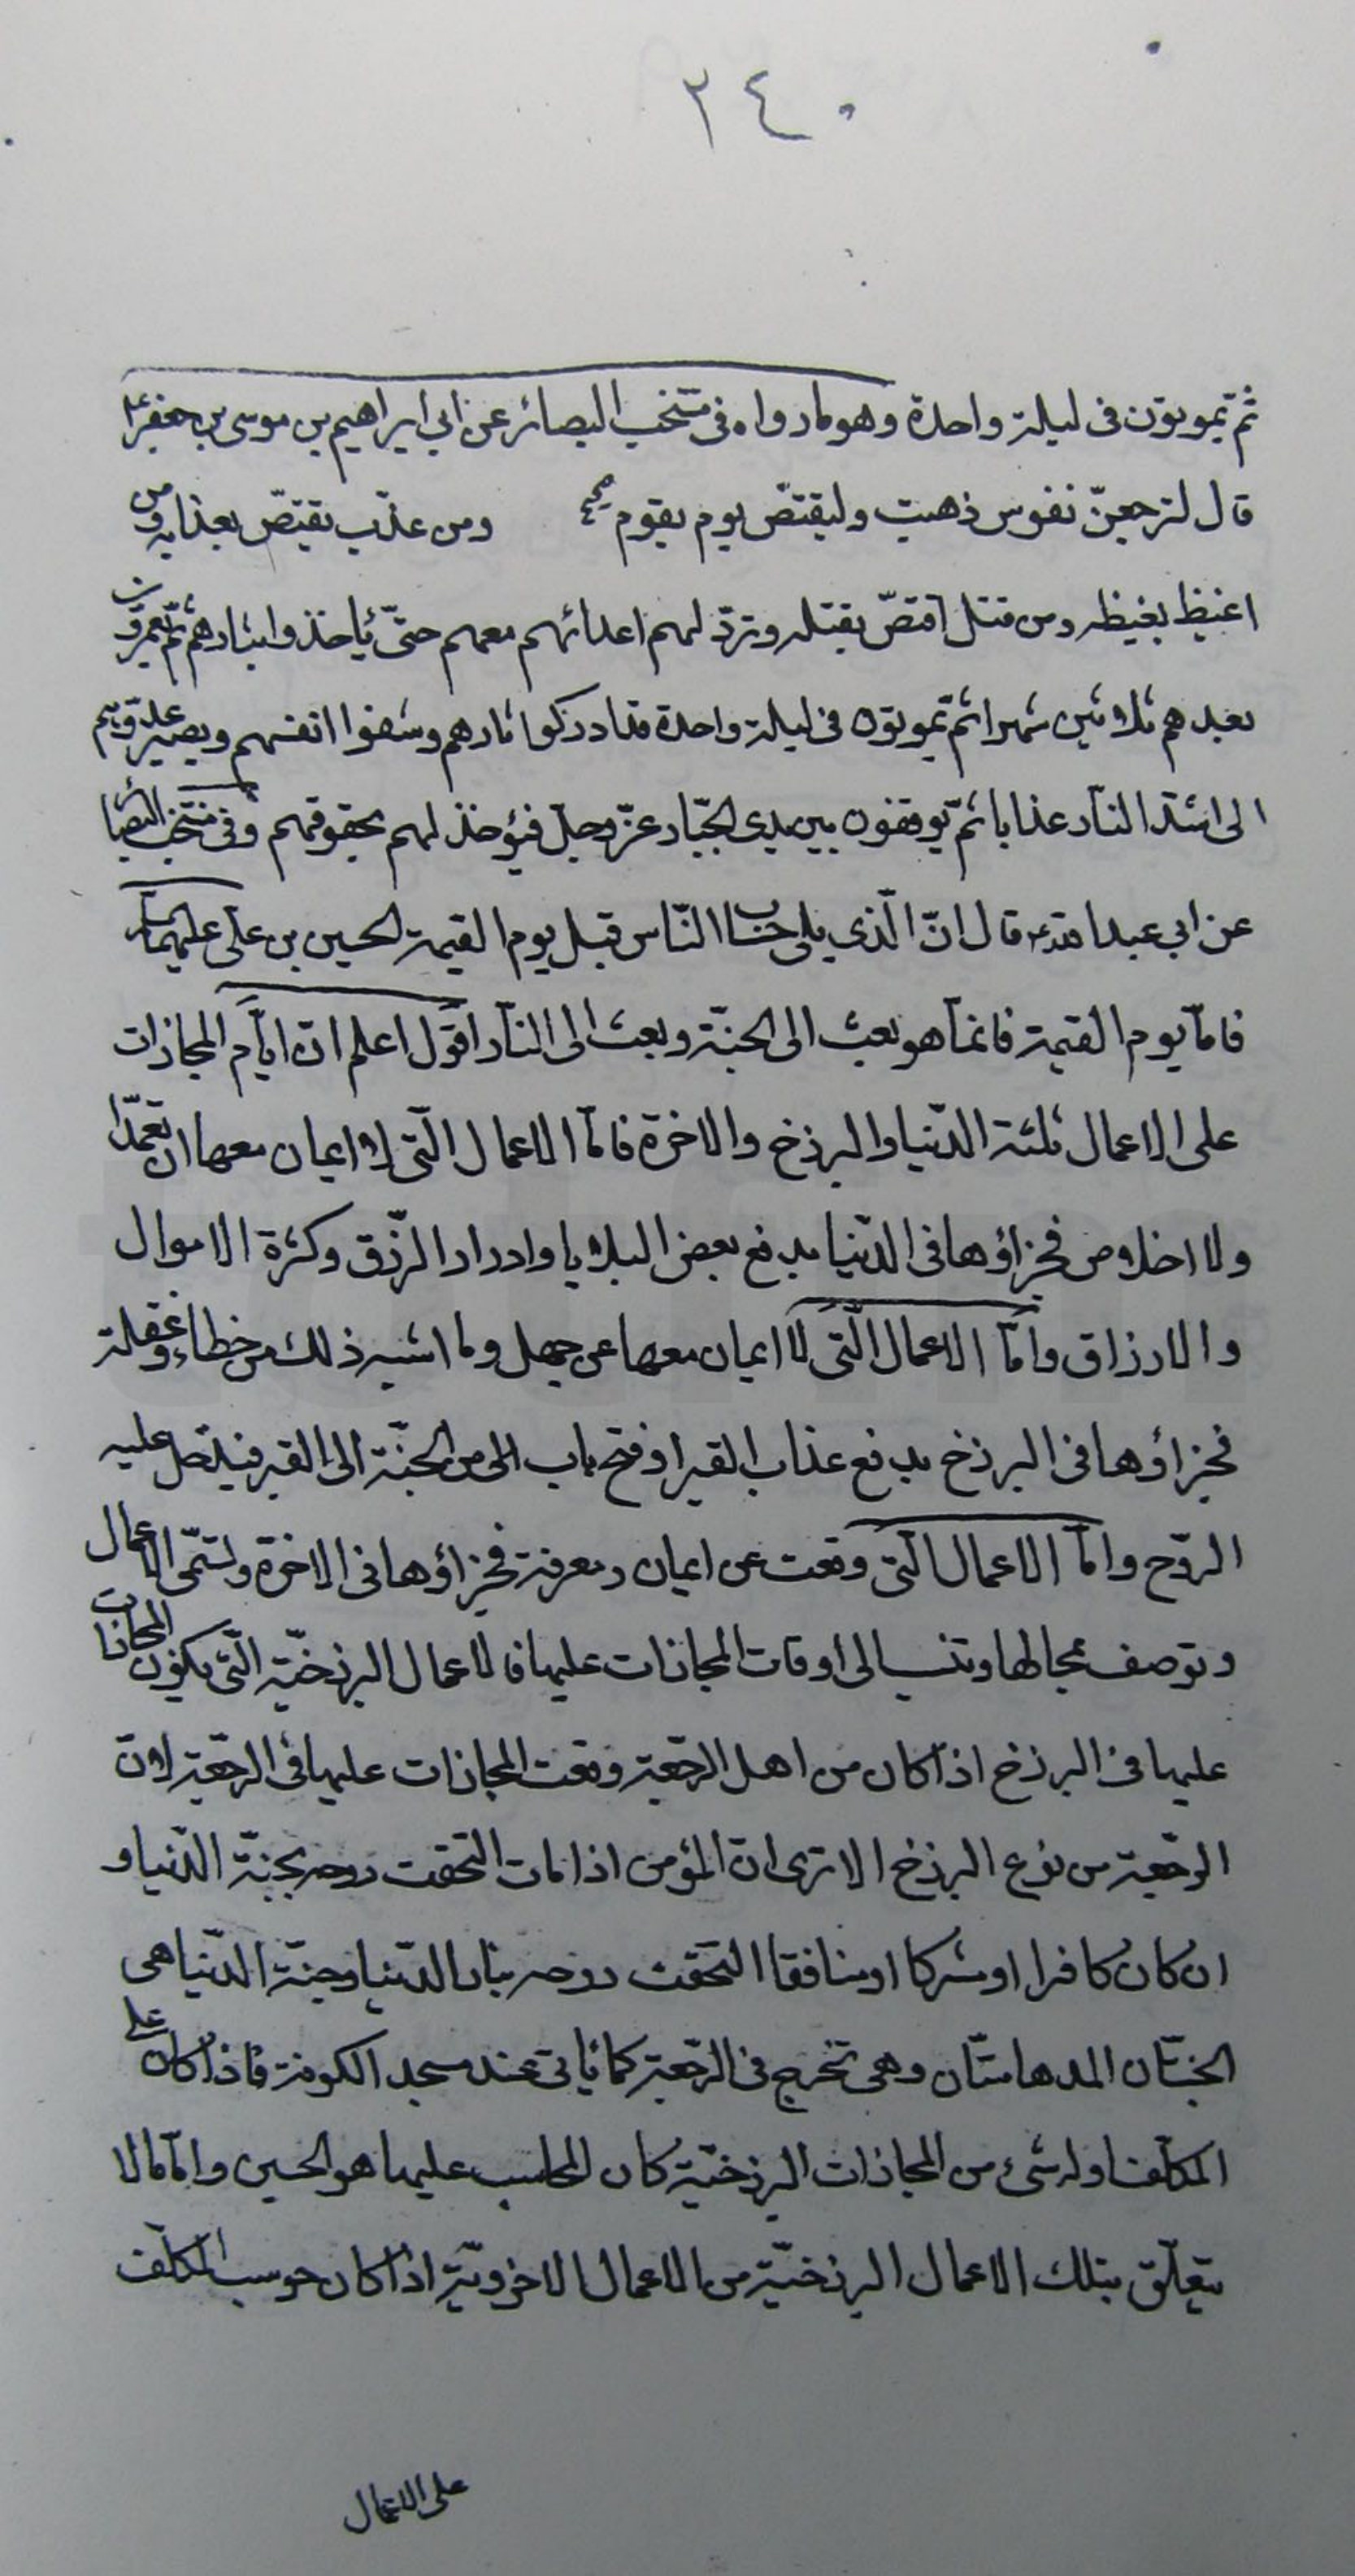 ٢٤٠
ثم يموتون فى ليلة واحدة وهو ما رواه فى منتخب البصائر عن ابي ابراهيم بن موسى بن جعفر ع
قال لترجعنّ نفوس ذهبت وليقتصّ يوم يقوم ومن عذّب يقتصّ بعذابه ومن
اغيظ بغيظه ومن قتل اقتصّ بقتله وتردّ لهم اعدائهم معهم حتّى ياخذوا بثارهم ثمّ يعمرون
بعدهم ثلاثين شهرا ثم يموتون فى ليلة واحدة قد ادركوا ثارهم وشفوا انفسهم ويصير عدوّهم
الى اشدّ النّار عذابا ثمّ يوقفون بين يدى الجبّار عزّ وجلّ فيؤخذ لهم بحقوقهم وفى منتخب البصائر
عن ابي عبد الله ع قال انّ الّذى يلى حساب النّاس قبل يوم القيمة الحسين بن على عليهما السلام
فامّا يوم القيمة فانمّا هو بعث الى الجنّة وبعث الى النّار اقول اعلم انّ ايّام المجازات
على الاعمال ثلثة الدّنيا والبرزخ والاخرة فامّا الاعمال الّتى لا ايمان معها ان تعمدّا
ولا اخلاص فجزاؤها فى الدّنيا بدفع بعض البلايا وادرار الرّزق وكثرة الاموال
والارزاق وامّا الاعمال الّتى لا ايمان معها عن جهل وما اشبه ذلك من خطاء وغفلة
فجزاؤها فى البرزخ بدفع عذاب القبر او فتح باب الى من الجنّة الى القبر فيدخل عليه
الرّوح وامّا الاعمال الّتى وقعت عن ايمان ومعرفة فجزاؤها فى الاخرة ولتسمّى الاعمال
وتوصف بمجالها وتنسب الى اوقات المجازات عليها فالاعمال البرزخيّة الّتى يكون المجازات
عليها فى البرزخ اذا كان من اهل الرّجعة وقعت المجازات عليها فى الرّجعة لانّ
الرّجعة من نوع البرزخ الا ترى انّ المؤمن اذا مات التحقت روحه بجنّة الدّنيا و
ان كان كافرا او مشركا او منافقا التحقت روحه بنار الدّنيا وجنّة الدّنيا هى
الجنّتان المدهامّتان وهى تخرج فى الرّجعة كما ياتى عند مسجد الكوفة فاذا كان على
المكلّف او له شىء من المجازات البرزخيّة كان المحاسب عليها هو الحسين وامّا ما لا
يتعلّق بتلك الاعمال البرزخيّة من الاعمال الاخرويّة اذا كان حوسب المكلّف
على الاعمال